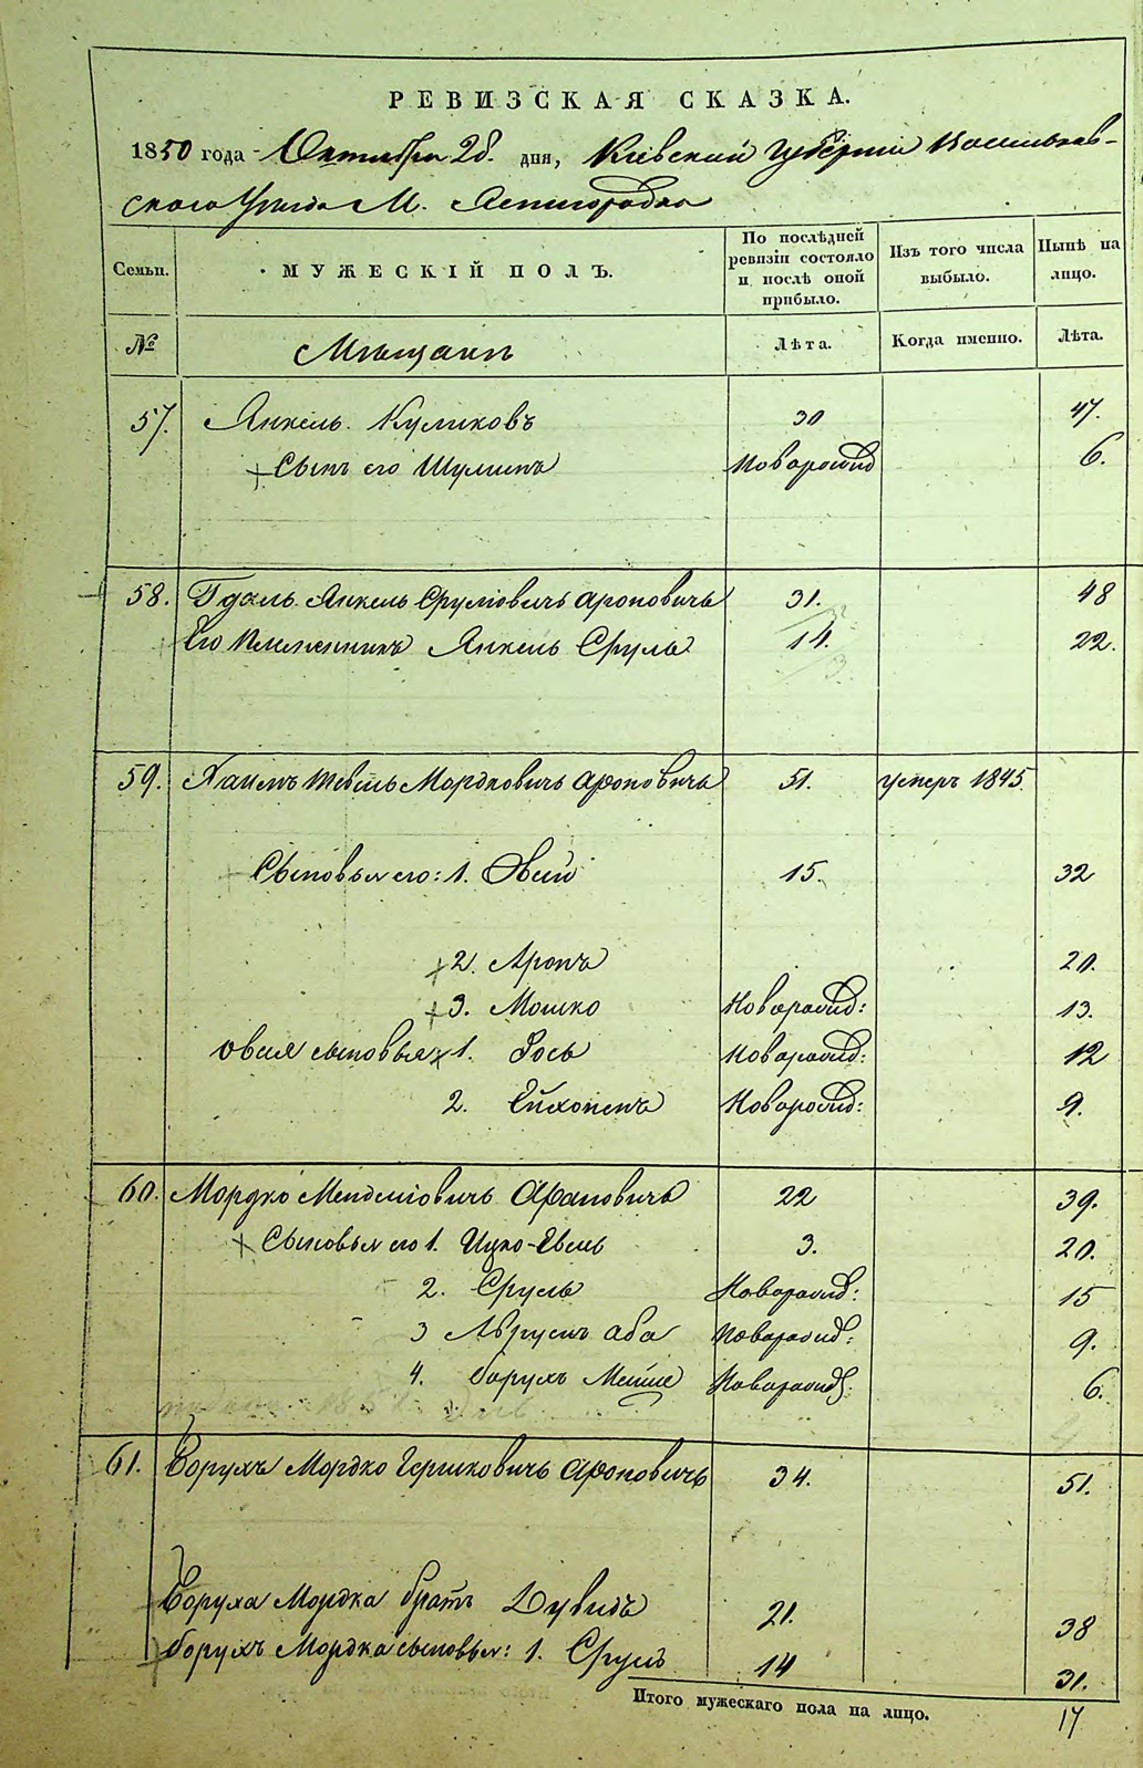 РЕВИЗСКАЯ СКАЗКА.
1850 года Октября 28. дня, Кіевской Губерніи Васильков-
скаго Уезда М.
Семьи. МУЖЕСКІЙ ПОЛЪ. По послѣдней ревизіи состояло и послѣ оной прибыло. Изъ того числа выбыло. Нынѣ на лицо.
№ Мещане Лѣта. Когда именно. Лѣта.
57. Янкель Куликовъ 30 47.
Сынъ его Шулимъ Новорожд 6.
58. Гдаль Янкель Сруліовичъ Ароновичъ 31. 48
Его Племянникъ Янкель Сруль 14. 22.
59. Хаимъ Тевель Мордковичъ Ароновичъ 51. умеръ 1845.
Сыновья его: 1. Овсій 15. 32
2. Аронъ 20.
3. Мошко Новорожд: 13.
Овсія сыновья 1. Іось Новорожд: 12
2. Новорожд: 9.
60. Мордко Менделіовичъ Ароновичъ 22 39.
Сыновья его 1. Ицко-Евель 3. 20.
2. Сруль Новорожд: 15
3 Аврумъ Аба Новорожд: 9.
4. Борухъ Мейше Новорожд: 6.
61. Борухъ Мордко Гершковичъ Ароновичъ 34. 51.
Боруха Мордка братъ Дувидъ 21. 38
Борухъ Мордка сыновья: 1. Сруль 14 31.
Итого мужескаго пола на лицо. 17